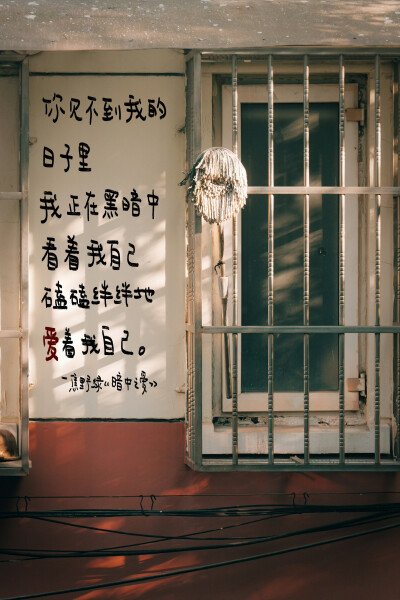 你见不到我的
日子里
我正在黑暗中
看着我自己
磕磕绊绊地
爱着我自己。
—焦野绿《暗中之爱》